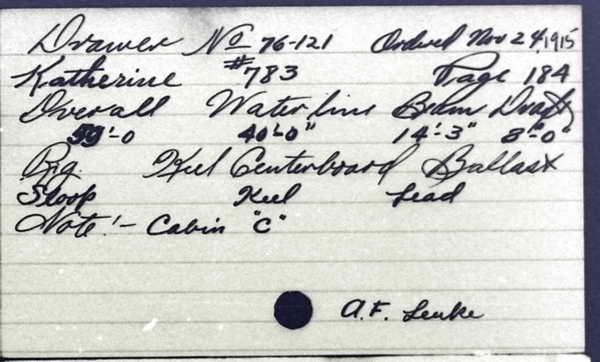 Drawer No 76-121 Ordered Nov 24, 1915
Katherine #783 Page 184
Overall Waterline Beam Draft
59'-0 40'-0" 14'-3" 8'-0"
Rig. Keel Centerboard Ballast
Sloop Keel Lead
Note:- Cabin "C"
A.F. Leuke